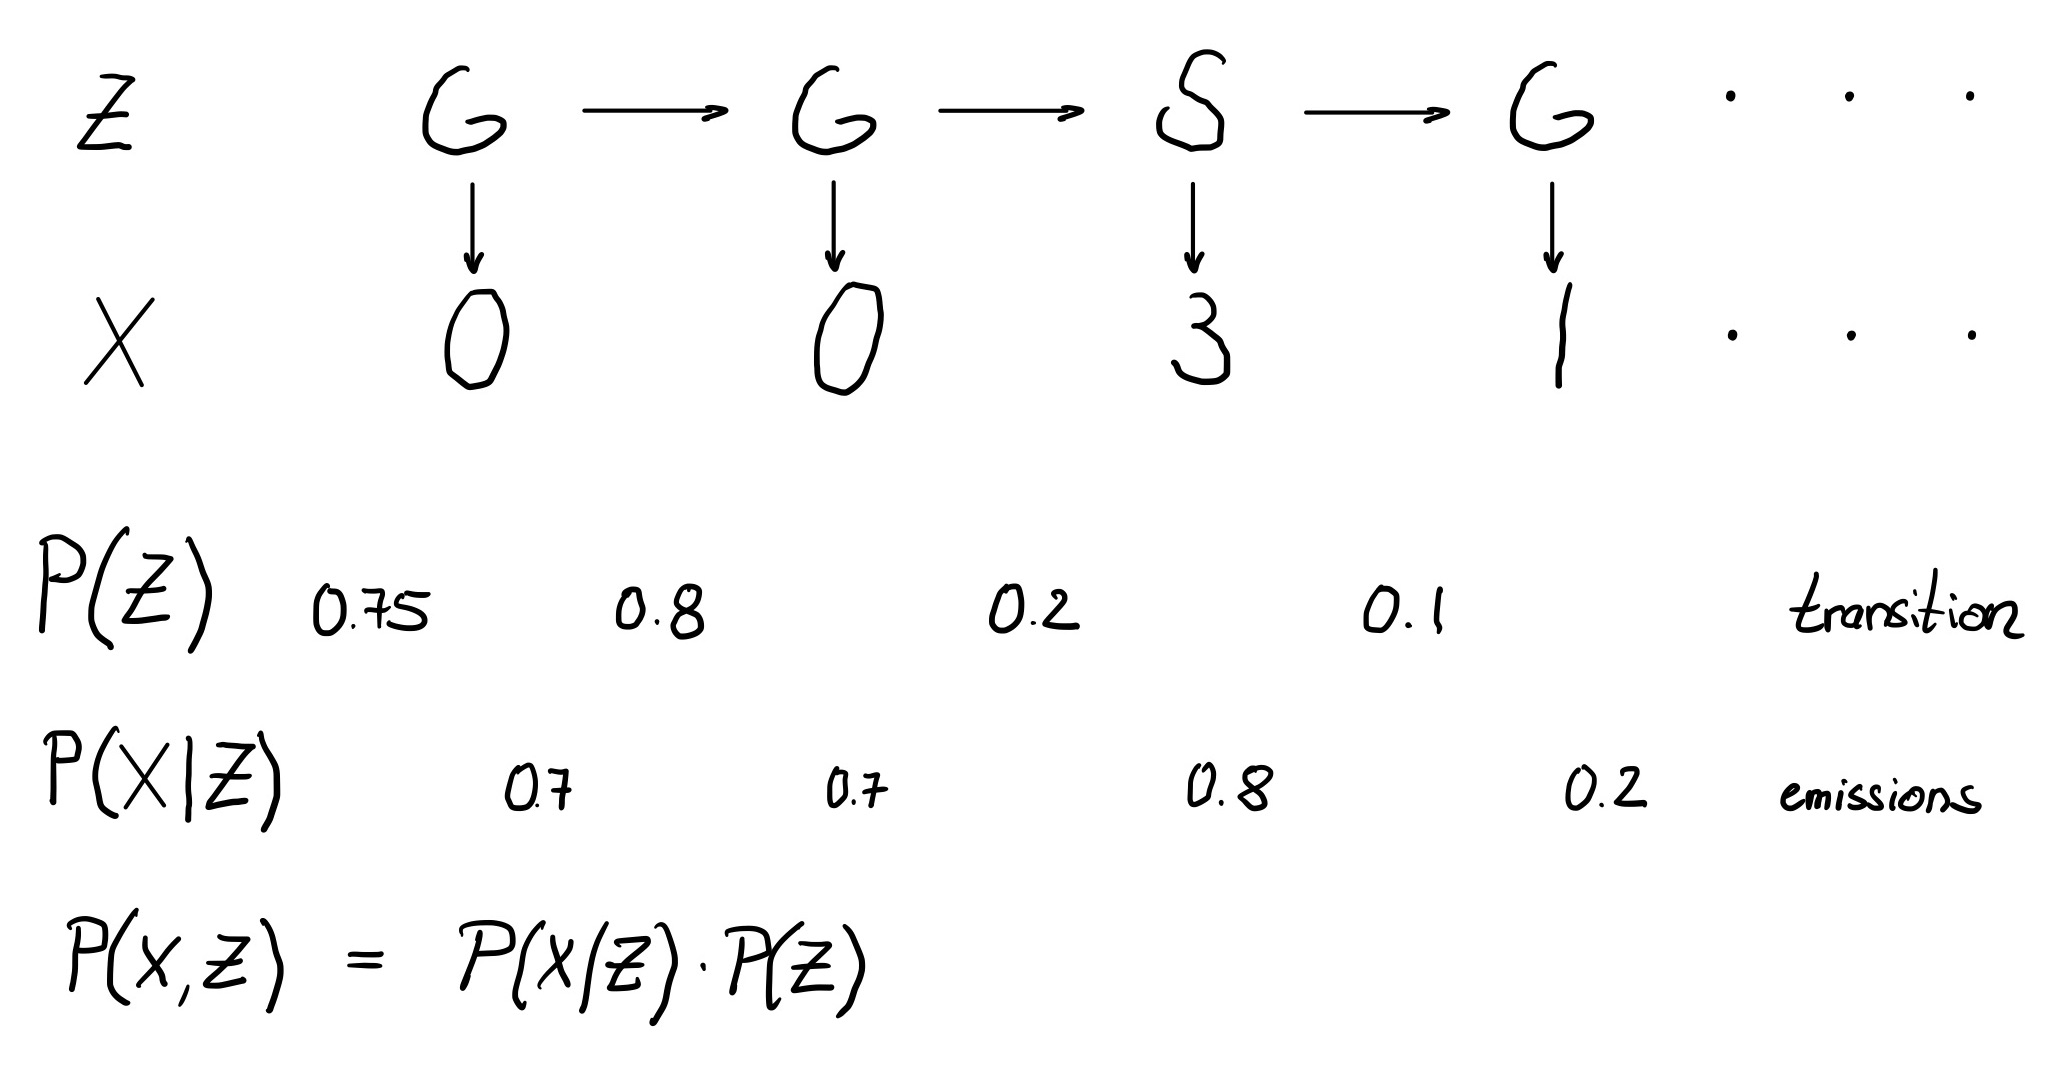 Z G → G → S → G . . .
↓ ↓ ↓ ↓
X 0 0 3 1 . . .
P(Z) 0.75 0.8 0.2 0.1 transition
P(X|Z) 0.7 0.7 0.8 0.2 emissions
P(X,Z) = P(X|Z) · P(Z)